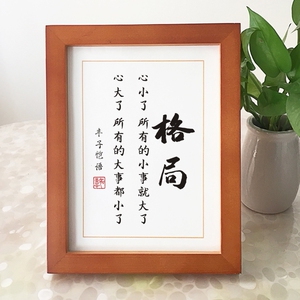 格局
心小了 所有的小事就大了
心大了 所有的大事都小了
丰子恺语